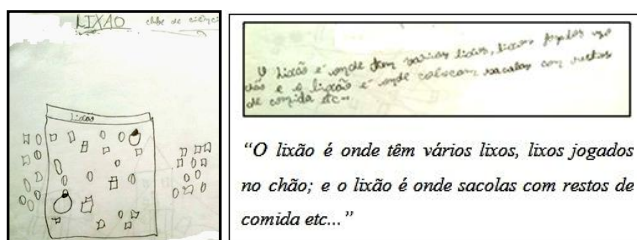 LIXAO clube de ciênci
Lixão
O lixão é onde tem varios lixos, lixos jogados no
chão e o lixão é onde colocam sacolas com restos
de comida etc...
“O lixão é onde têm vários lixos, lixos jogados
no chão; e o lixão é onde sacolas com restos de
comida etc...”